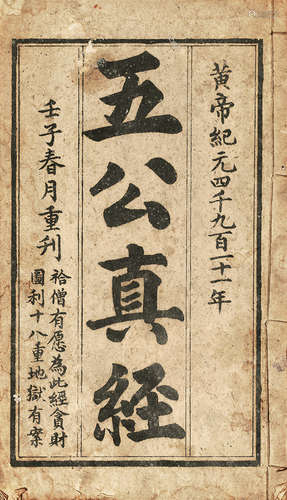 黄帝紀元四千九百二十一年
五公真経
壬子春月重刊
袷僧有愿為此經貪財
圖利十八重地獄有案